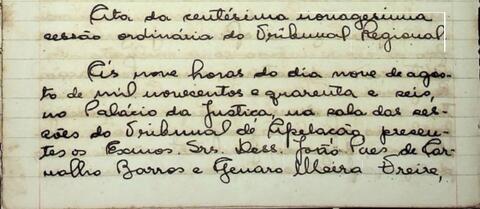 Ata da centésima nonagesima
sessão ordinária do Tribunal Regional
Ás nove horas do dia nove de agos-
to de mil novecentos e quarenta e seis,
no Palácio da Justiça, na sala das ses-
sões do Tribunal de Apelação, presen-
tes os Exmos. Srs. Dess. João Paes de Car-
valho Barros e Genaro Meira Freire,